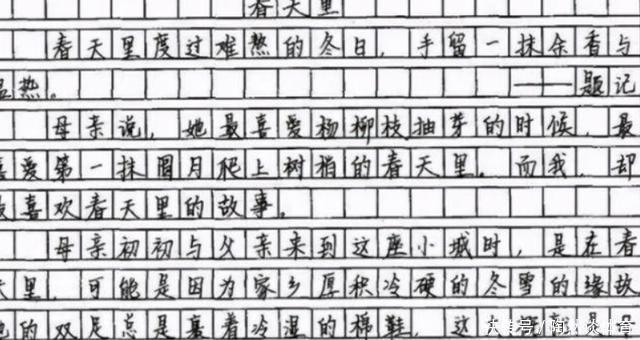 春天里
春天里度过难熬的冬日，手留一抹余香与
温热。——题记
母亲说，她最喜爱杨柳枝抽芽的时候，最
喜爱第一抹圆月爬上树梢的春天里。而我，却
喜欢春天里的故事。
母亲初初与父亲来到这座小城时，是在春
天里，可能是因为家乡厚积冷硬的冬雪的缘故
她的双足总是裹着冷湿的棉鞋，这